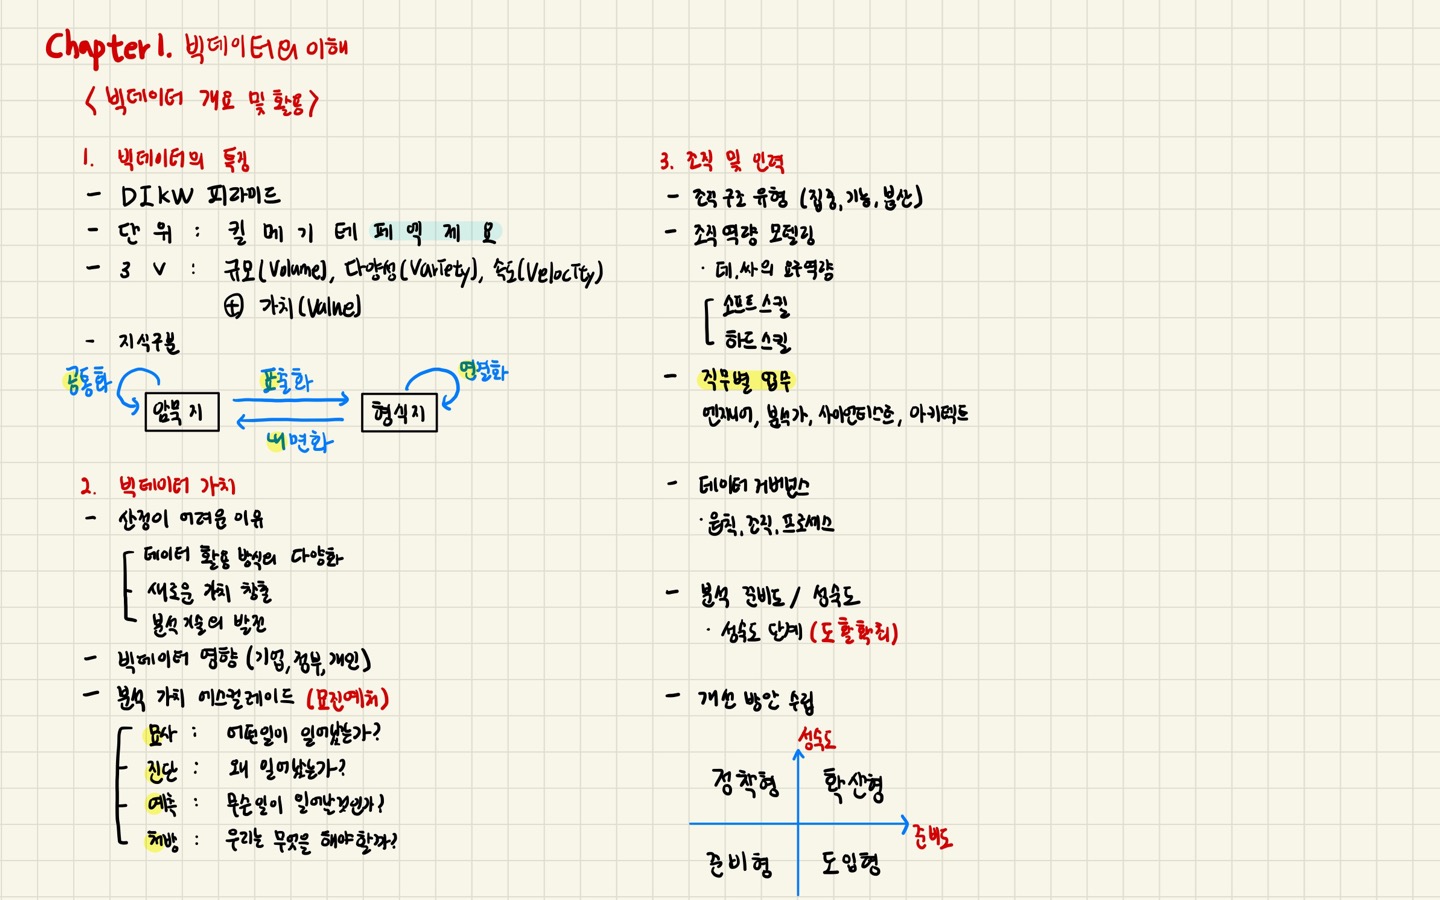 Chapter 1. 빅데이터의 이해
< 빅데이터 개요 및 활용 >
1. 빅데이터의 특징
- DIKW 피라미드
- 단위 : 킬 메 기 테 페 엑 제 요
- 3V : 규모(Volume), 다양성(Variety), 속도(Velocity)
⊕ 가치(Value)
- 지식구분
공통화
표출화
연결화
암묵지
형식지
내면화
2. 빅데이터 가치
- 산정이 어려운 이유
데이터 활용 방식의 다양화
새로운 가치 창출
분석기술의 발전
- 빅데이터 영향 (기업, 정부, 개인)
- 분석 가치 에스컬레이드 (묘진예처)
묘사 : 어떤일이 일어났는가?
진단 : 왜 일어났는가?
예측 : 무슨일이 일어날것인가?
처방 : 우리는 무엇을 해야할까?
3. 조직 및 인력
- 조직구조 유형 (집중, 기능, 분산)
- 조직역량 모델링
· 데.싸의 요구역량
소프트스킬
하드스킬
- 직무별 업무
엔지니어, 분석가, 사이언티스트, 아키텍트
- 데이터 거버넌스
· 원칙, 조직, 프로세스
- 분석 준비도 / 성숙도
· 성숙도 단계 (도활확최)
- 개선 방안 수립
성숙도
정착형 확산형
준비도
준비형 도입형